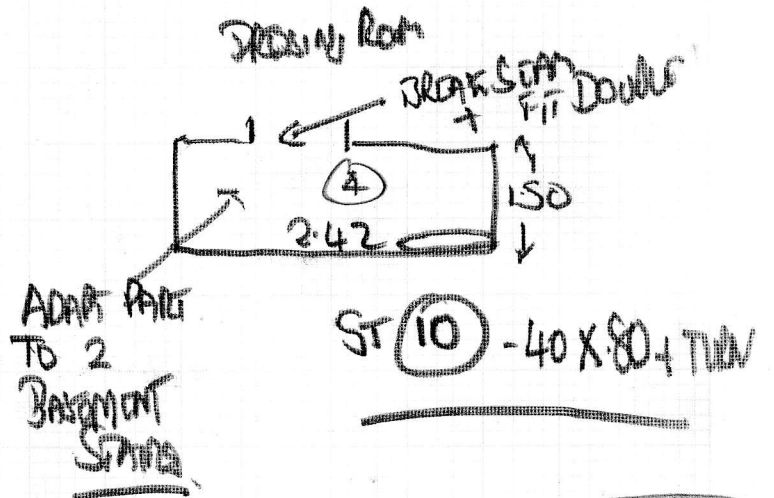 DRESSING ROOM
BREAK SEAM
+ FIT DOUBLE
4
1.50
2.42
ADAPT PART
TO 2
BASEMENT
STAIRS
ST 10 - 40 X .80 + TURN